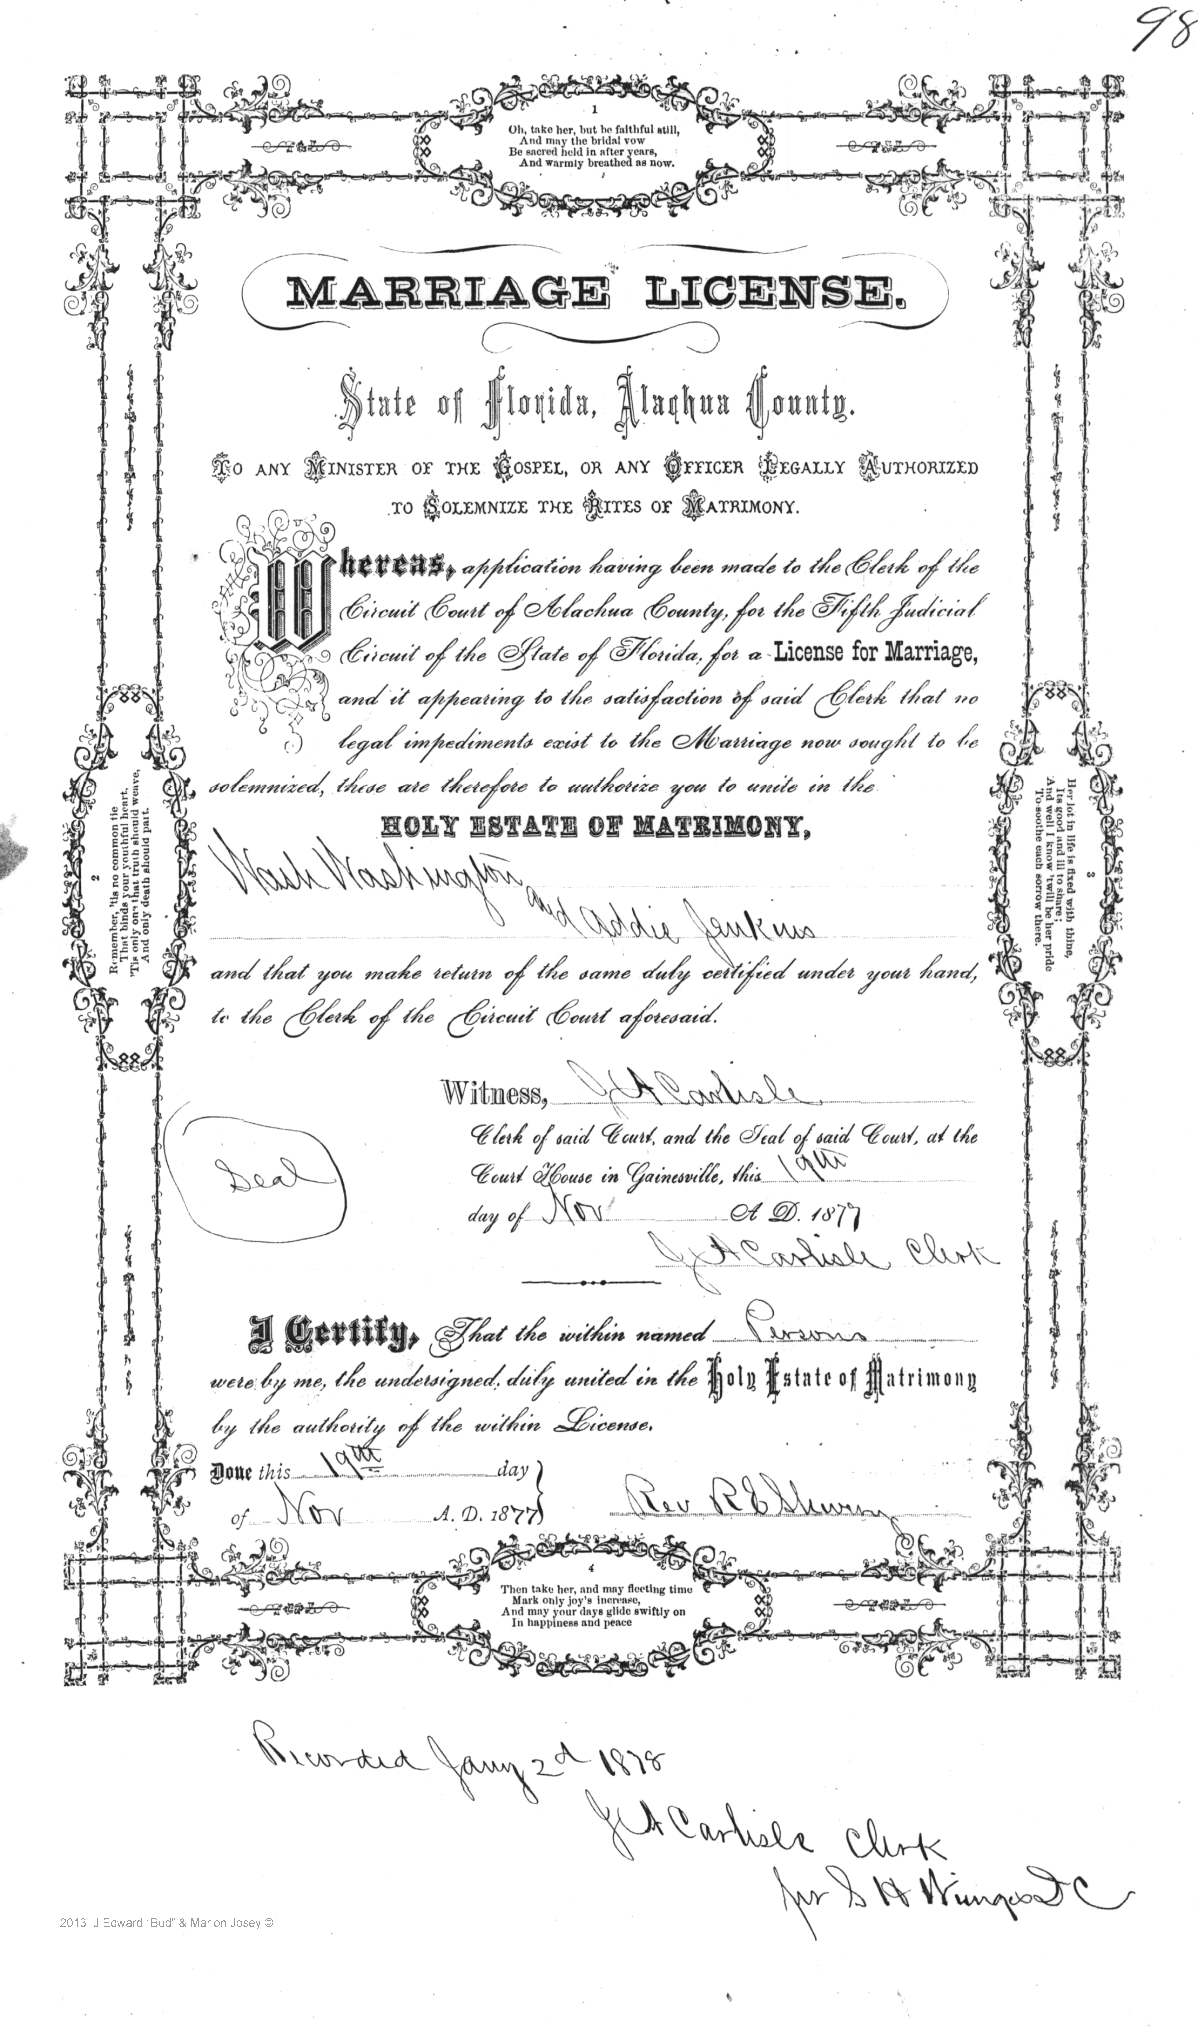 98
1
Oh, take her, but be faithful still,
And may the bridal vow
Be sacred held in after years,
And warmly breathed as now.
MARRIAGE LICENSE.
State of Florida, Alachua County.
To any Minister of the Gospel, or any Officer Legally Authorized
to Solemnize the Rites of Matrimony.
Whereas, application having been made to the Clerk of the
Circuit Court of Alachua County, for the Fifth Judicial
Circuit of the State of Florida, for a License for Marriage,
and it appearing to the satisfaction of said Clerk that no
legal impediments exist to the Marriage now sought to be
solemnized, these are therefore to authorize you to unite in the
HOLY ESTATE OF MATRIMONY,
Wash Washington
and Addie Jenkins
and that you make return of the same duly certified under your hand,
to the Clerk of the Circuit Court aforesaid.
2
Remember, 'tis no common tie
That binds your youthful heart,
'Tis only one that truth should weave,
And only death should part.
3
Her lot in life is fixed with thine,
Its good and ill to share;
And well I know 'twill be her pride
To soothe each sorrow there.
Witness, J A Carlisle
Clerk of said Court, and the Seal of said Court, at the
Court House in Gainesville, this 19th
day of Nov A D. 1877
J A Carlisle Clerk
Seal
I Certify, That the within named Persons
were by me, the undersigned, duly united in the Holy Estate of Matrimony
by the authority of the within License.
Done this 19th day
of Nov A. D. 1877
Rev R E
4
Then take her, and may fleeting time
Mark only joy's increase,
And may your days glide swiftly on
In happiness and peace
Recorded Jany 2d 1878
J A Carlisle Clerk
per S H D C
2013 J Edward "Bud" & Marion Josey ©